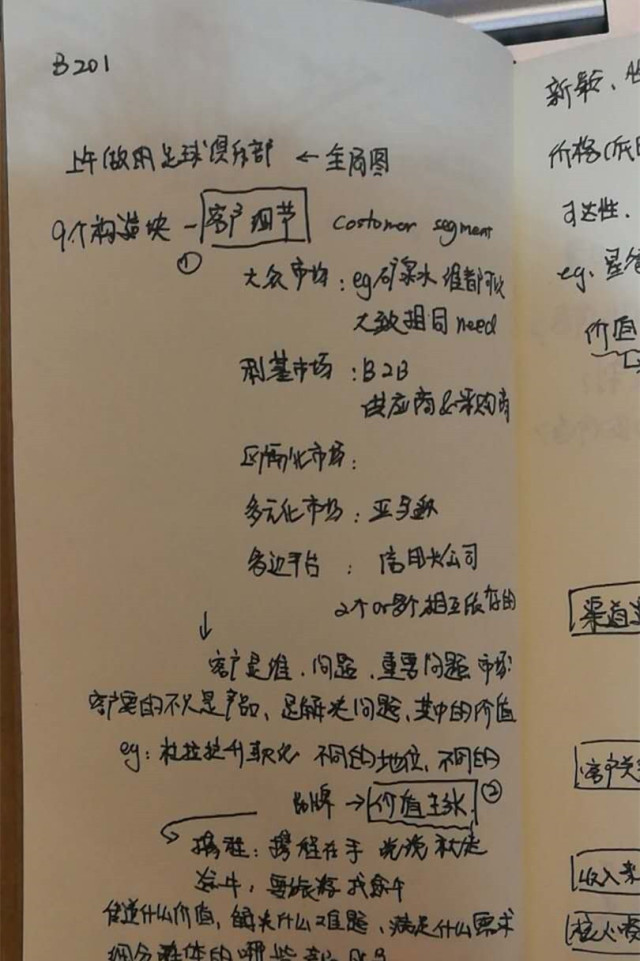 B201
上午做的足球俱乐部 ← 全局图
9个构造块 — 客户细节 costomer segment
①
大众市场：eg矿泉水 谁都可以
大致相同need
利基市场：B2B
供应商&采购商
区隔化市场：
多元化市场：亚马逊
多边平台：信用卡公司
2个or多个相互依存的
↓
客户是谁、问题、重要问题 市场
客户要的不只是产品、是解决问题、其中的价值
eg：杜拉拉升职记 不同的地位、不同的
品牌 → 价值主张 ②
携程：携程在手 说走就走
途牛，要旅游找途牛
什么价值，解决什么难题、满足什么需求
细分群体的哪些
新颖、
价格(低
可达性、
eg、星
价值
渠道
客户关
收入来
核心